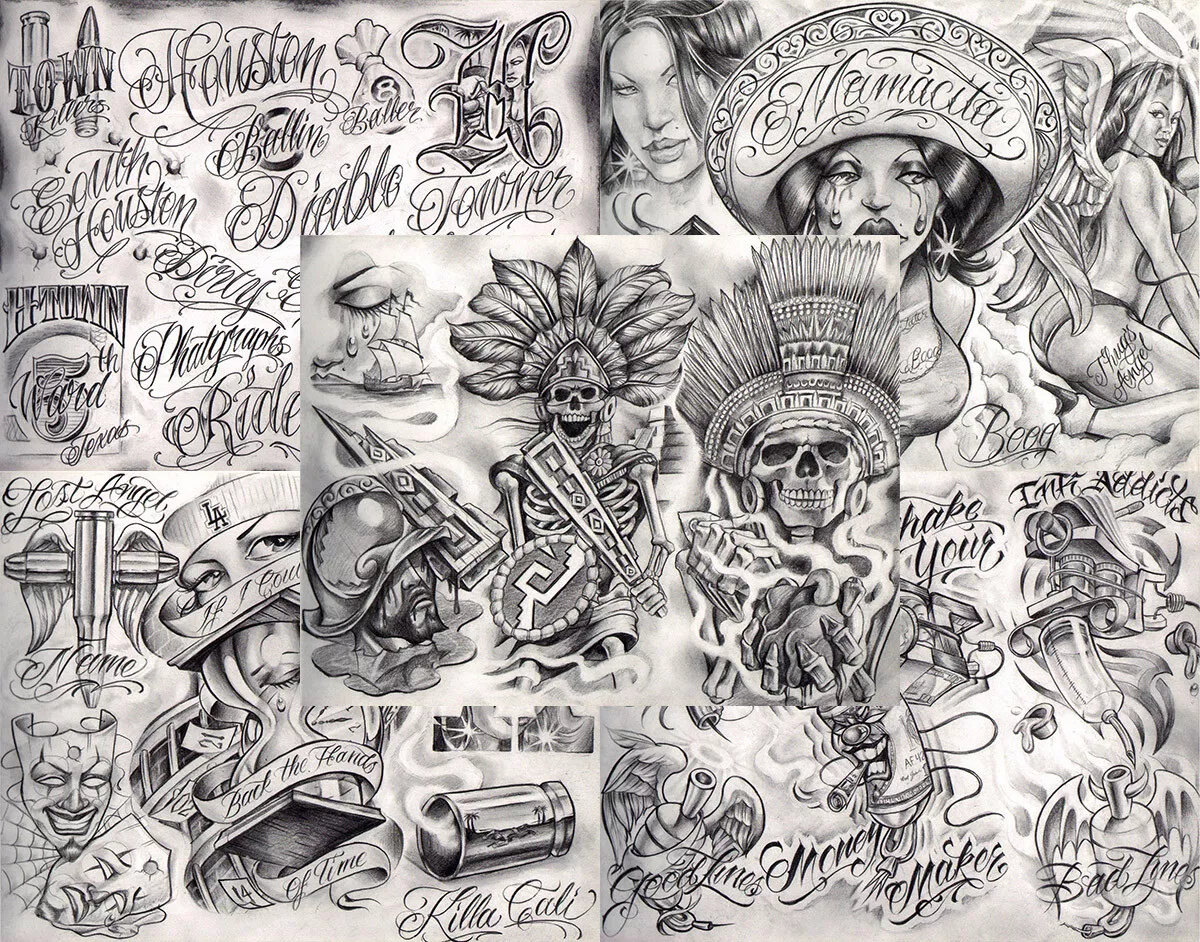 TOWN
Killers
Houston
Ballin
8
Baller
H
South
Houston
Diablo
Towner
Dirty
H-TOWN
5th
Ward
Texas
Photgraphs
Ride
Mamacita
Boog
Music
Angel
Boog
Lost Angel
Name
LA
If I Cou
21
Back the Hands
14
Of Time
Killa Cali
hake
Your
Ink Addicts
Good Lines
Money
Maker
Bad Lines